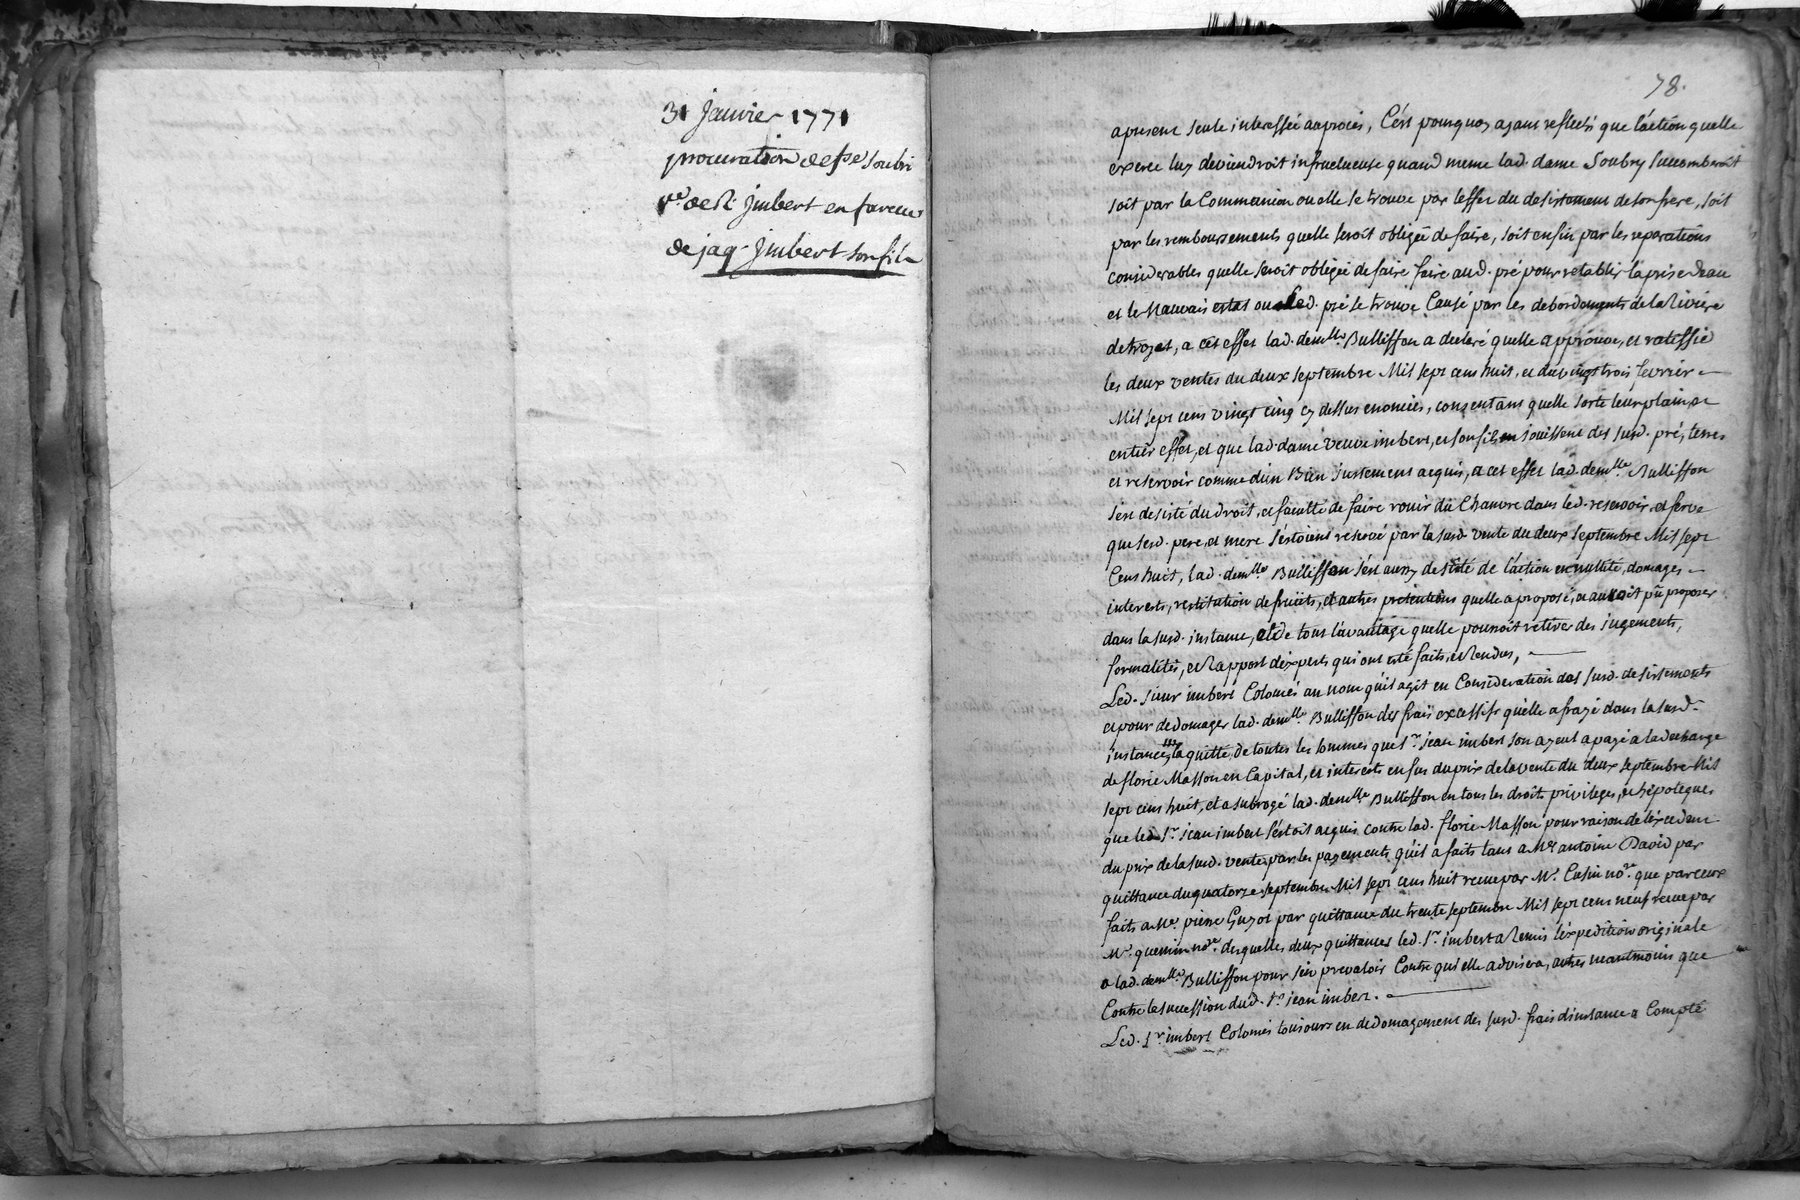 31 Janvier 1771
procuration de fse Soubri
ve de Sr. Jmbert en faveur
de jaq. Jmbert son fils
78.
apresent seule interessée auprocés, C'est pourquoy ayant reflechi que l'action quelle
exerce luy deviendroit infructueuse quand meme lad. dame Soubry succomberoit
soit par la Communion ou elle se trouve par l'effet du desistement de son frere, soit
par les remboursements quelle seroit obligée de faire, soit enfin par les reparations
considerables quelle seroit obligée de faire faire aud. pré pour retablir la prise d'eau
et le Mauvais estat ou Led. pré se trouve Causé par les debordements de la Riviere
de trezet, a cet effet lad. demlle. Bullisson a declaré quelle approuve, et ratiffie
les deux ventes du deux septembre Mil sept cens huit, et du vingt trois fevrier
Mil sept cens vingt cinq cy dessus enoncées, consentant quelle sorte leur plain, et
entier effet, et que lad. dame veuve imbert, et son fils en jouissent des susd. pré, terres
et reservoir comme d'un Bien justement acquis, a cet effet lad. demlle. Bullisson
s'est desisté du droit, et faculté de faire rouir du Chanvre dans led. reservoir, et serve
que sesd. pere, et mere s'estoient reservé par la susd. vente du deux septembre Mil sept
Cens huit, lad. demlle. Bullisson s'est aussy desisté de l'action en nullité, domages
interests, restitution de fruits, et autres pretentions quelle a proposé, et auroit pû proposer
dans la susd. instance, et de tous l'avantage quelle pourroit retirer des jugements,
formalités, et Rapport d'experts qui ont esté faits, et Rendus,
Led. sieur imbert Colomés au nom qu'il agit en Consideration des susd. desistements
et pour dedomager lad. demlle. Bullisson des frais excessifs qu'elle a frayé dans la susd.
instance, la quitte de toutes les sommes que Sr. jean imbert son ayeul a payé a la decharge
de florie Masson en Capital, et interests en sus du prix de la vente du deux septembre Mil
sept cens huit, et a subrogé lad. demlle Bullisson en tous les droits, privileges, et hÿpoteques
que led. Sr. jean imbert s'estoit acquis contre lad. florie Masson pour raison de l'excedent
du prix de la susd. vente par les payements qu'il a faits tans a Me antoine David par
quittance du quatorze septembre Mil sept cens huit recue par Me. Cusin nore. que par ceux
faits a Me. pierre Guyot par quittance du trente septembre Mil sept cens neuf recue par
Me. guenin nore. desquelles deux quittances led. Sr. imbert a Remis l'expedition originale
a lad. demlle. Bullisson pour s'en prevaloir Contre qui elle advisera, autres neantmoins que
Contre la succession dud. Sr. jean imbert.
Led. Sr. imbert Colomés toujours en dedomagement des susd. frais d'instance a Compté